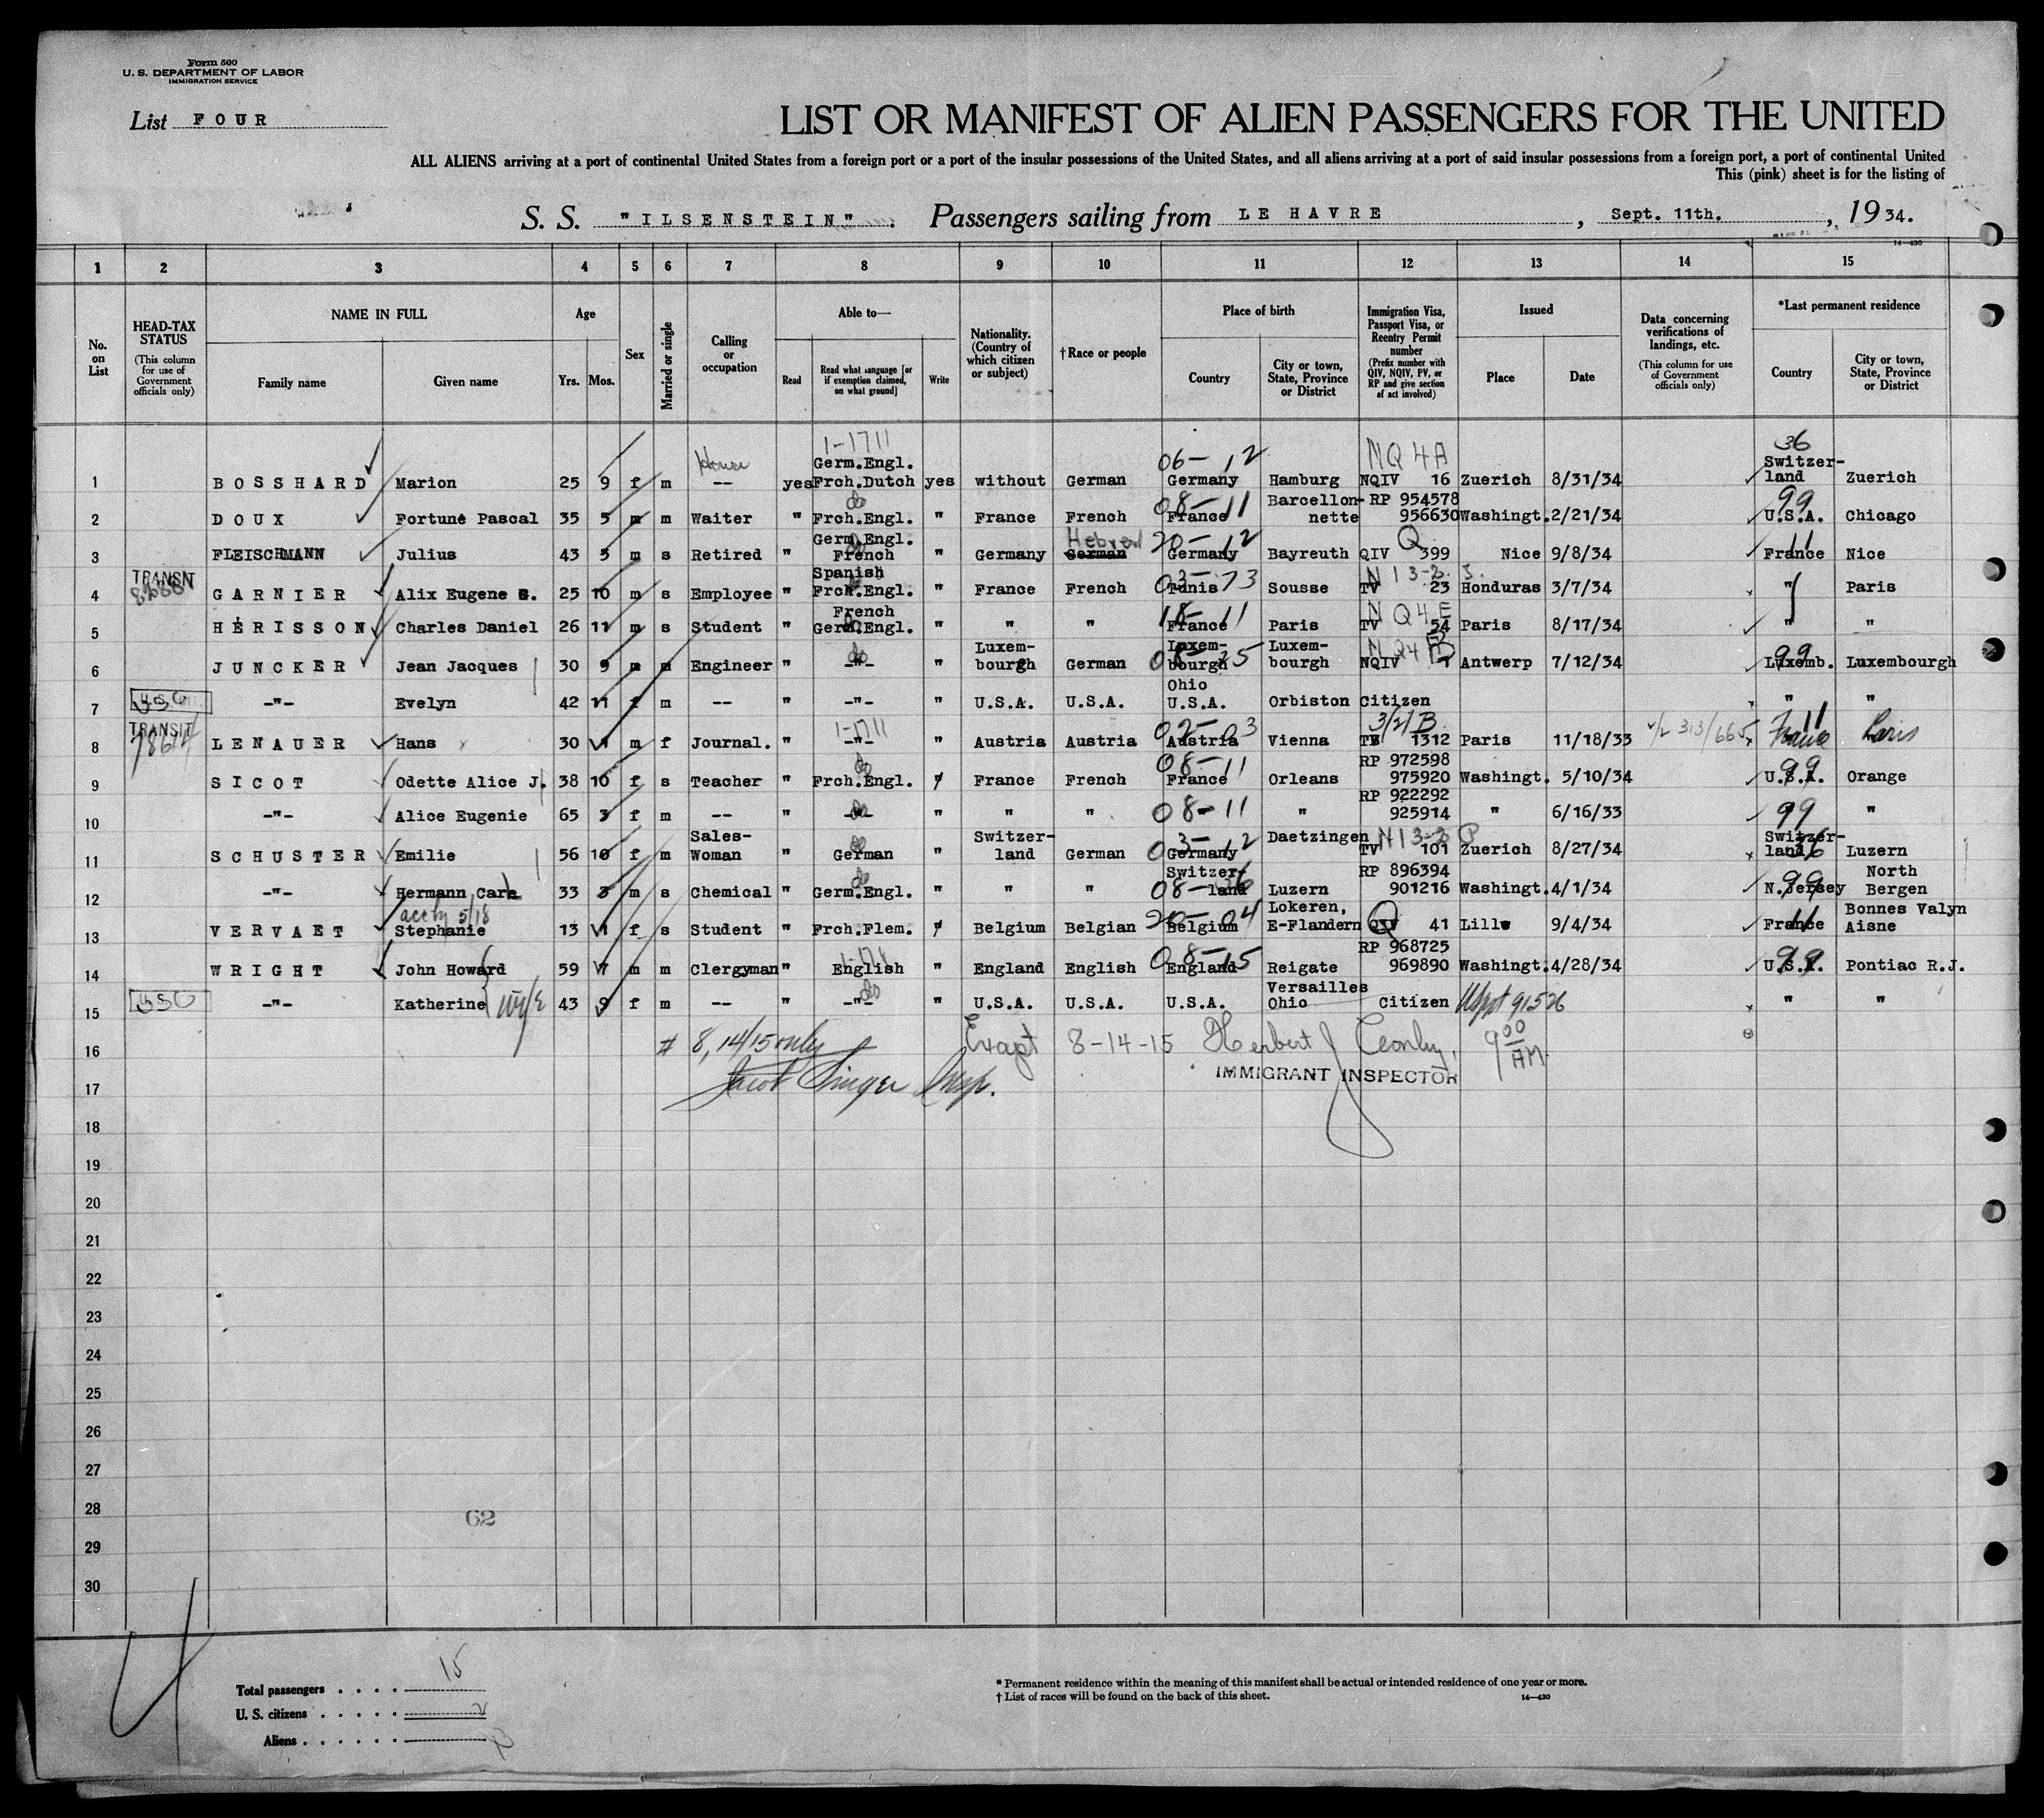 Form 500
U. S. DEPARTMENT OF LABOR
IMMIGRATION SERVICE
List FOUR
LIST OR MANIFEST OF ALIEN PASSENGERS FOR THE UNITED
ALL ALIENS arriving at a port of continental United States from a foreign port or a port of the insular possessions of the United States, and all aliens arriving at a port of said insular possessions from a foreign port, a port of continental United
This (pink) sheet is for the listing of
S. S. "ILSENSTEIN". Passengers sailing from LE HAVRE, Sept. 11th., 1934.
14—430
1 2 3 4 5 6 7 8 9 10 11 12 13 14 15
No. on List
HEAD-TAX STATUS (This column for use of Government officials only)
NAME IN FULL Family name Given name
Age Yrs. Mos.
Sex
Married or single
Calling or occupation
Able to— Read Read what language [or if exemption claimed, on what ground] Write
Nationality. (Country of which citizen or subject)
†Race or people
Place of birth Country City or town, State, Province or District
Immigration Visa, Passport Visa, or Reentry Permit number (Prefix number with QIV, NQIV, PV, or RP and give section of act involved)
Issued Place Date
Data concerning verifications of landings, etc. (This column for use of Government officials only)
*Last permanent residence Country City or town, State, Province or District
1 BOSSHARD Marion 25 9 f m -- yes Germ.Engl. Frch.Dutch yes without German 06-12 Germany Hamburg NQ 4A NQIV 16 Zuerich 8/31/34 36 Switzer-land Zuerich 1-1711
2 DOUX Fortuné Pascal 35 5 m m Waiter " do Frch.Engl. " France French 08-11 France Barcellon-nette RP 954578 956630 Washingt. 2/21/34 99 U.S.A. Chicago
3 FLEISCHMANN Julius 43 3 m s Retired " Germ.Engl. French " Germany German Hebrew 20-12 Germany Bayreuth Q QIV 399 Nice 9/8/34 11 France Nice
4 TRANSIT GARNIER Alix Eugene G. 25 10 m s Employee " Spanish Frch.Engl. " France French 03-73 Tunis Sousse N 13-3 TV 23 Honduras 3/7/34 " Paris
5 HÉRISSON Charles Daniel 26 11 m s Student " French Germ.Engl. " " " 18-11 France Paris N Q4E TV 54 Paris 8/17/34 " "
6 JUNCKER Jean Jacques 30 9 m m Engineer " do -"- " Luxem-bourgh German 08-25 Luxem-bourgh Luxem-bourgh NQ4B NQIV 1 Antwerp 7/12/34 99 Luxemb. Luxembourgh
7 USC -"- Evelyn 42 11 f m -- " -"- " U.S.A. U.S.A. Ohio U.S.A. Orbiston Citizen " "
8 TRANSIT LENAUER Hans 30 11 m f Journal. " 1-1711 -"- " Austria Austria 02-03 Austria Vienna 3/2/B 1312 Paris 11/18/33 France 11 Paris
9 SICOT Odette Alice J. 38 10 f s Teacher " do Frch.Engl. " France French 08-11 France Orleans RP 972598 975920 Washingt. 5/10/34 99 U.S.A. Orange
10 -"- Alice Eugenie 65 3 f m -- " do -"- " " " 08-11 " RP 922292 925914 " 6/16/33 99 "
11 SCHUSTER Emilie 56 10 f m Sales-Woman " do German " Switzer-land German 03-12 Germany Daetzingen N13-3 TV 101 Zuerich 8/27/34 Switzer-land 36 Luzern
12 -"- Hermann Carl 33 3 m s Chemical " do Germ.Engl. " " " 08-36 Switzer-land Luzern RP 896394 901216 Washingt. 4/1/34 99 N.Jersey North Bergen
13 VERVAET Stephanie 13 11 f s Student " Frch.Flem. " Belgium Belgian 20-04 Belgium Lokeren, E-Flandern Q QIV 41 Lille 9/4/34 11 France Bonnes Valyn Aisne
14 WRIGHT John Howard 59 7 m m Clergyman " English " England English 08-15 England Reigate RP 968725 969890 Washingt. 4/28/34 99 U.S.A. Pontiac R.J.
15 USC -"- Katherine wife 43 9 f m -- " do -"- " U.S.A. U.S.A. U.S.A. Versailles Ohio Citizen USppt 91526 " "
16 # 8, 14/15 only Except 8-14-15 Herbert J 9 00 AM
17 Jacob Singer Insp. IMMIGRANT INSPECTOR
18
19
20
21
22
23
24
25
26
27
28
62
29
30
4
Total passengers . . . . 15
U. S. citizens . . . . . 2
Aliens . . . . . . 13
* Permanent residence within the meaning of this manifest shall be actual or intended residence of one year or more.
† List of races will be found on the back of this sheet. 14—430